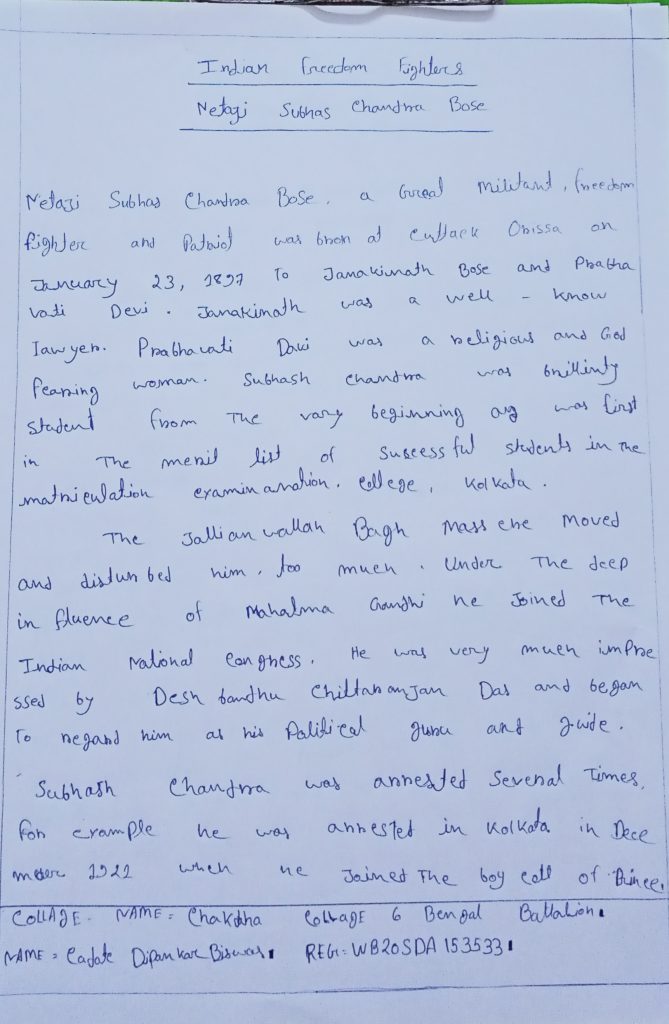 Indian Freedom Fighters
Netaji Subhas Chandra Bose
Netaji Subhas Chandra Bose. a Gureat militant, freedom
fighter and Patriot was bron at Cuttack Orissa on
January 23, 1897 To Janakinath Bose and Prabha
vati Devi. Janakinath was a well - know
lawyer. Prabhavati Davi was a religious and God
fearing woman. Subhash chandra was brillinty
student from The vary beginning as was first
in The merit list of Suscess ful students in The
matriculation examin anation. College, Kolkata.
The Jallian wallah Bagh Mass cne Moved
and distur bed him. too much. Under The deep
in fluence of Mahatma Gandhi he Joined The
Indian National Congress. He was very much impre
ssed by Desh bandhu Chittaranjan Das and began
To regard him as his Political guru and guide.
Subhash Chandra was arrested Several Times,
for example he was arrested in Kolkata in Dece
mber 1921 when he Joined The boy cott of Prince.
COLLAGE. NAME = Chakdha Collage 6 Bengal Battalion.
NAME = Cadate Dipankar Biswas. REG:- WB20SDA 153533